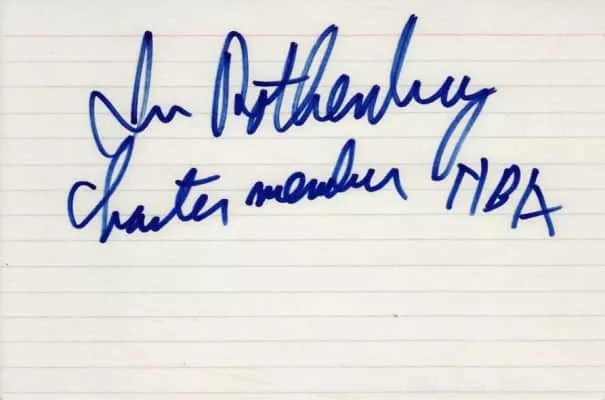 Irv Rothenberg
Charter member NBA